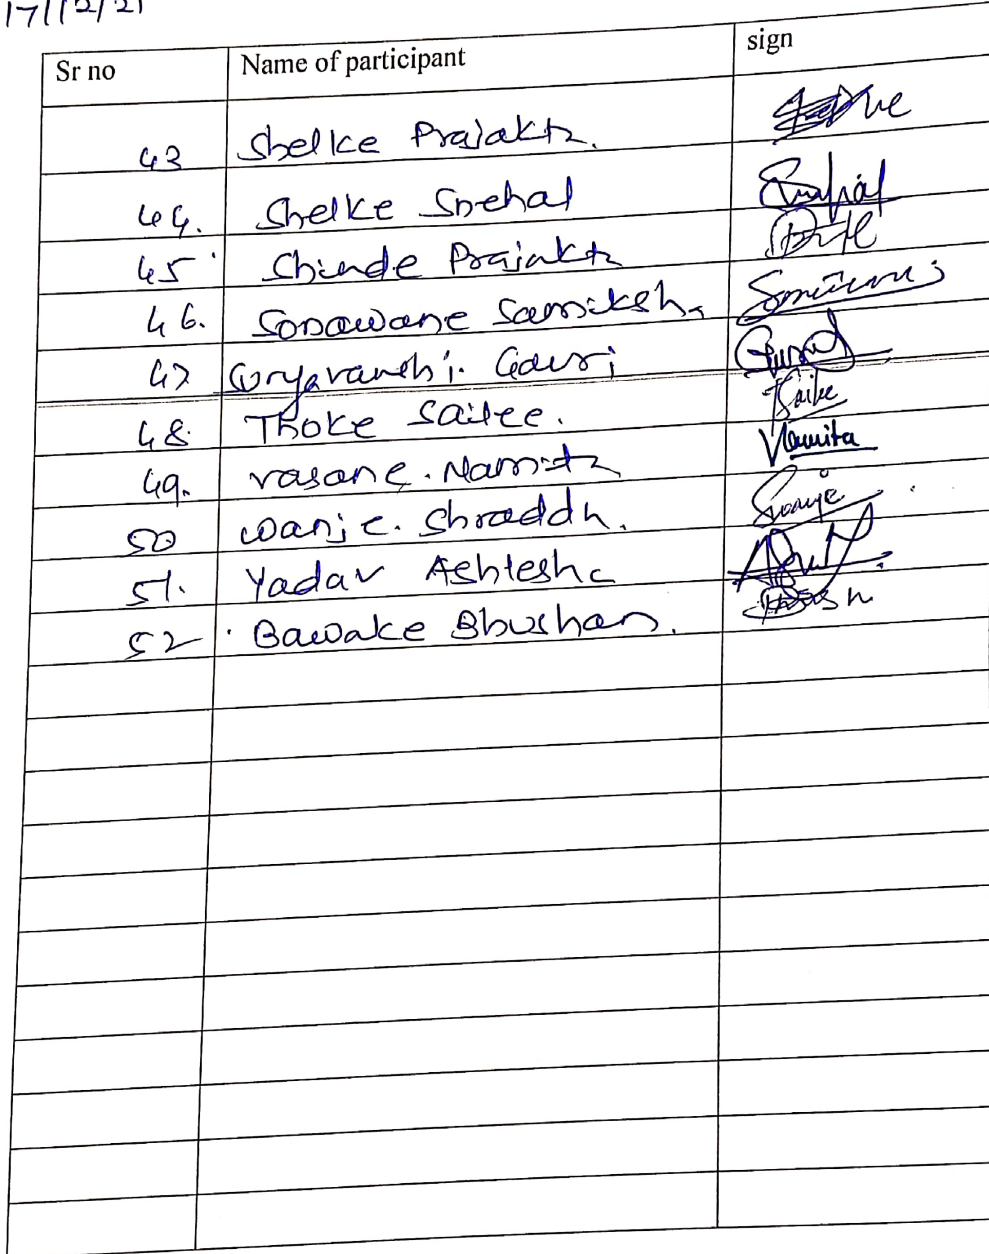 17/12/21
Sr no Name of participant sign
43 Shelke Prajakta.
44. Shelke Snehal
45 Shinde Prajakta
46. Sonawane Samiksha
47 Suryavanshi. Gauri
48. Thoke Sailee. Sailee
49. vasane. Namita Namita
50 wanje. Shraddh.
51. Yadav Ashlesha
52 Bawake Bhushan.